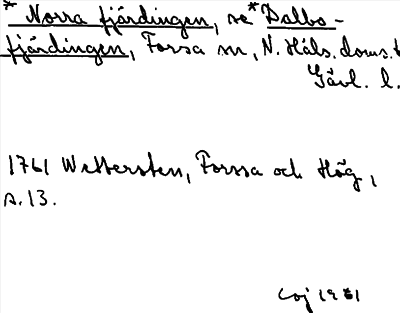 * Norra fjärdingen, se *Dalbo-
fjärdingen, Forsa sn, N. Häls. doms.
Gävl. l.
1761 Wettersten, Forssa och Hög,
s. 13.
1981